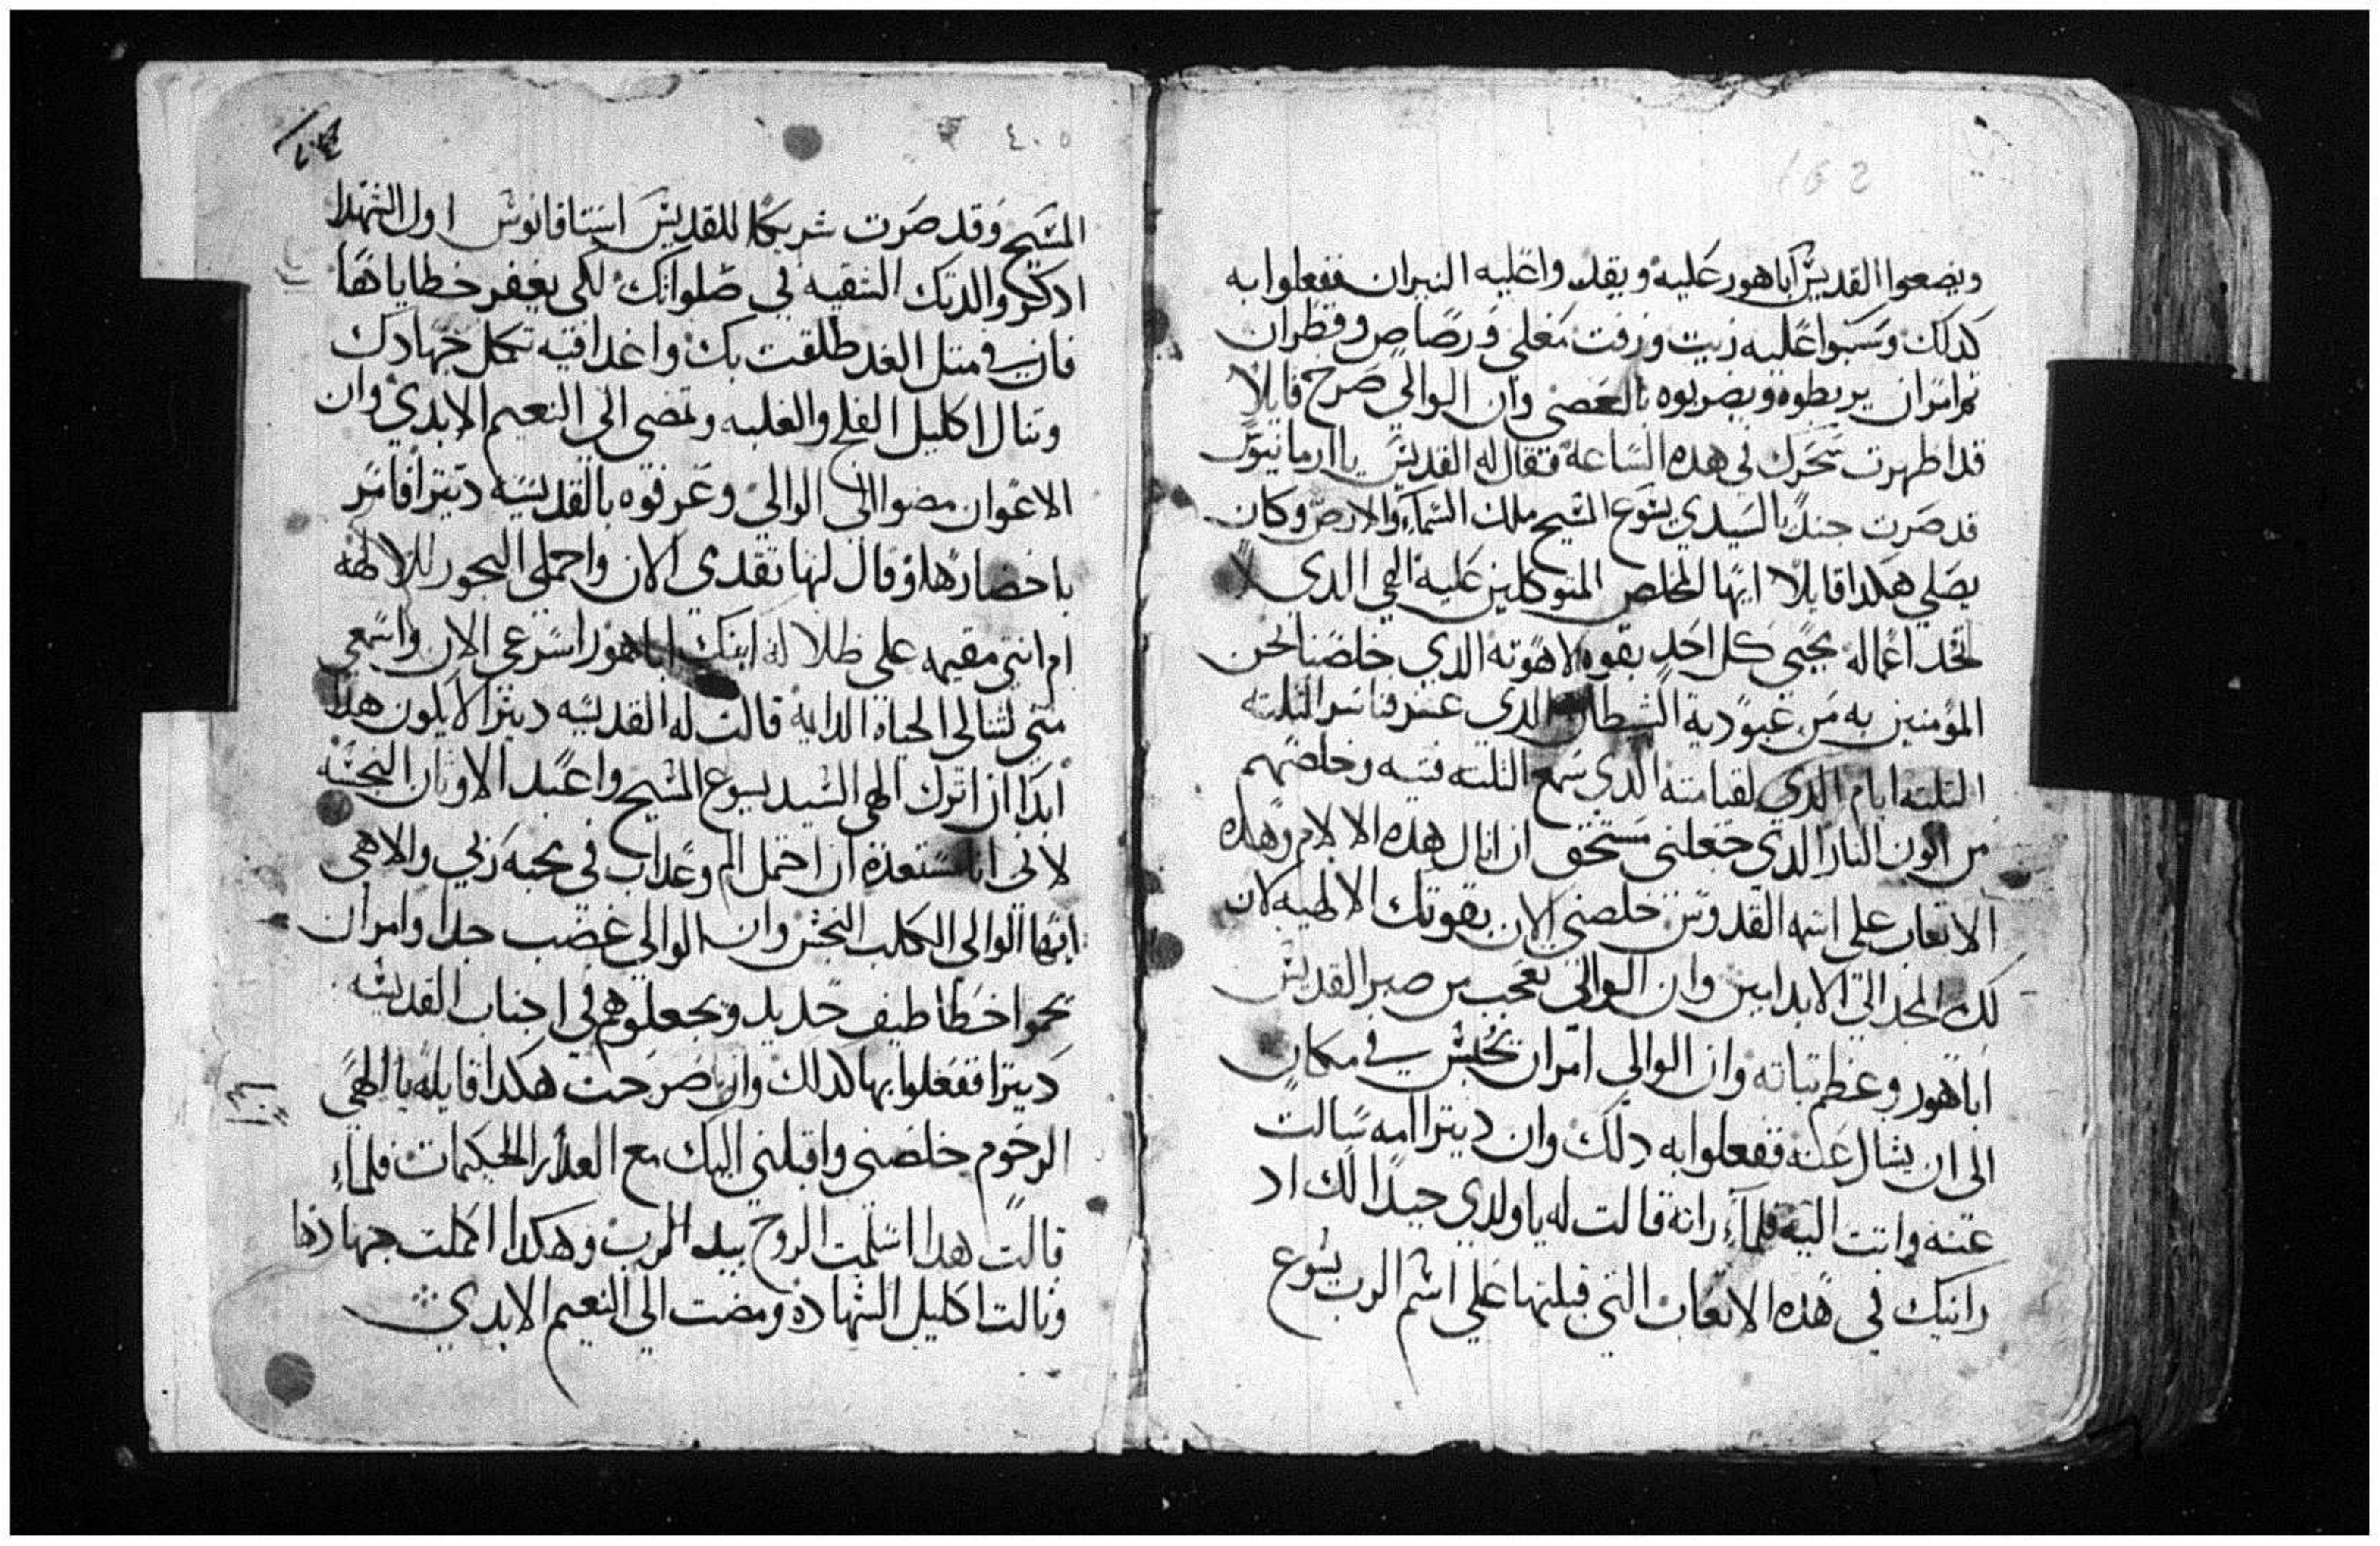 ويضعوا القديس اباهور عليه ويقدوا عليه النيران ففعلوا به
كدلك وسكبوا عليه زيت وزفت مغلي ورصاص وقطران
تم امر ان يربطوه ويضربوه بالعصي وان الوالي صرخ قايلا
قد اظهرت سحرك في هده الساعة فقال له القديس يا ارمانيوس
قد صرت جندي لسيدي يسوع المسيح ملك السماء والارض وكان
يصلي هكدا قايلا ايها المخلص المتوكلين عليه الهي الدي لا
تحد اعماله محيي كل احد بقوه لاهوته الدي خلصنا نحن
المؤمنين به من عبودية الشيطان الدي
التلته ايام الدي لقيامته الدي سمع التلته فتيه وخلصهم
من اتون النار الدي جعلني مستحق ان انال هده الالام وهده
الاتعاب على اسمه القدوس خلصني الان بقوتك الالهيه لان
لك المجد الي الابد امين وان الوالي تعجب من صبر القديس
اباهور وعظم تباته وان الوالي امر ان يحبس في مكان
الى ان يسال عنه ففعلوا به دلك وان ديترا امه سالت
عنه واتت اليه فلماء راته قالت له يا ولدي جيدا لك اد
رايتك في هده الاتعاب التي قبلتها علي اسم الرب يسوع
٤٠٥
المسيح وقد صرت شريكا للقديس استافانوس اول الشهدا
ادكر والدتك الشقيه في صلواتك لكي يغفر خطاياها
فان في متل الغد طلقت بك وا غدا فيه تكمل جهادك
وتنال اكليل الفلح والغلبه وتمضي الي النعيم الابدي وان
الاعوان مضوا الى الوالي وعرفوه بالقديسه ديترا فامر
باحضارها وقال لها تقدمي الان واحملي البخور للالهه
ام انتي مقيمه علي ظلالة ابنك اباهور اسرعي الان واسمعي
مني لتنالي الحياه الدايمة قالت له القديسه ديترا لا يكون هدا
ابدا ان اترك الهي السيد يسوع المسيح واعبد الاوتان النجسه
لاني انا مستعدة ان احتمل الم وعداب في محبة ربي والاهي
ايها الوالي الكلب النجس وان الوالي غضب جدا وامر ان
يحموا خطاطيف حديد ويجعلوهم في اجناب القديسه
ديترا ففعلوا بها كدلك وانها صرخت هكدا قايلة يا الهي
الرحوم خلصني واقبلني اليك مع العدارا الحكيمات فلماء
قالت هدا اسلمت الروح بيد الرب وهكدا اكملت جهادها
ونالت اكليل الشهادة ومضت الى النعيم الابدي